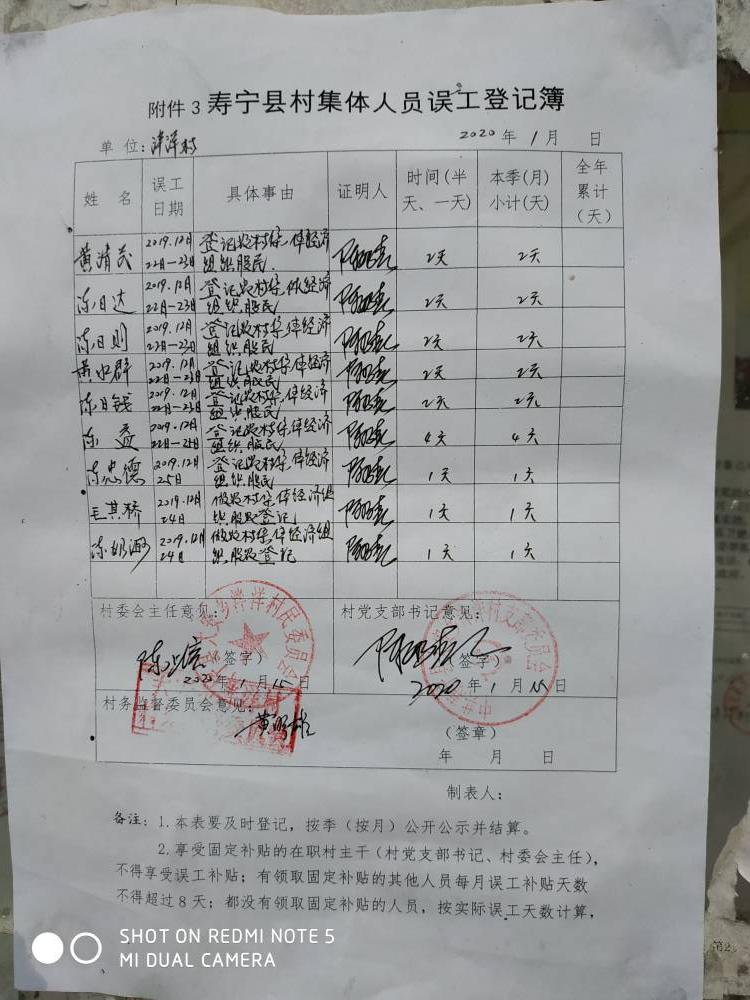 附件3 寿宁县村集体人员误工登记簿
单 位:
2020 年 1 月 日
姓 名 误工日期 具体事由 证明人 时间(半天、一天) 本季(月)小计(天) 全年累计(天)
黄清茂 2019.12月22日—23日 登记农村集体经济组织股民. 2天 2天
陈日达 2019.12月22日—23日 登记农村集体经济组织股民 2天 2天
陈日则 2019.12月22日—23日 登记农村集体经济组织股民 2天 2天
黄 群 2019.12月22日—23日 登记农村集体经济组织股民 2天 2天
陈日钱 2019.12月22日—23日 登记农村集体经济组织股民 2天 2天
陈 益 2019.12月22日—25日 登记农村集体经济组织股民 4天 4天
陈忠德 2019.12月25日 登记农村集体经济组织股民 1天 1天
毛其娇 2019.12月24日 做农村集体经济组织股权登记 1天 1天
陈奶 2019.12月24日 做农村集体经济组织股权登记 1天 1天
村委会主任意见:
村党支部书记意见:
(签字)
(签字)
2020 年 1 月 15 日
2020 年 1 月 15 日
村务监督委员会意见:
黄
(签章)
年 月 日
制表人:
备注: 1.本表要及时登记,按季(按月)公开公示并结算。
2.享受固定补贴的在职村主干(村党支部书记、村委会主任),
不得享受误工补贴;有领取固定补贴的其他人员每月误工补贴天数
不得超过8天;都没有领取固定补贴的人员,按实际误工天数计算,
第2
SHOT ON REDMI NOTE 5
MI DUAL CAMERA